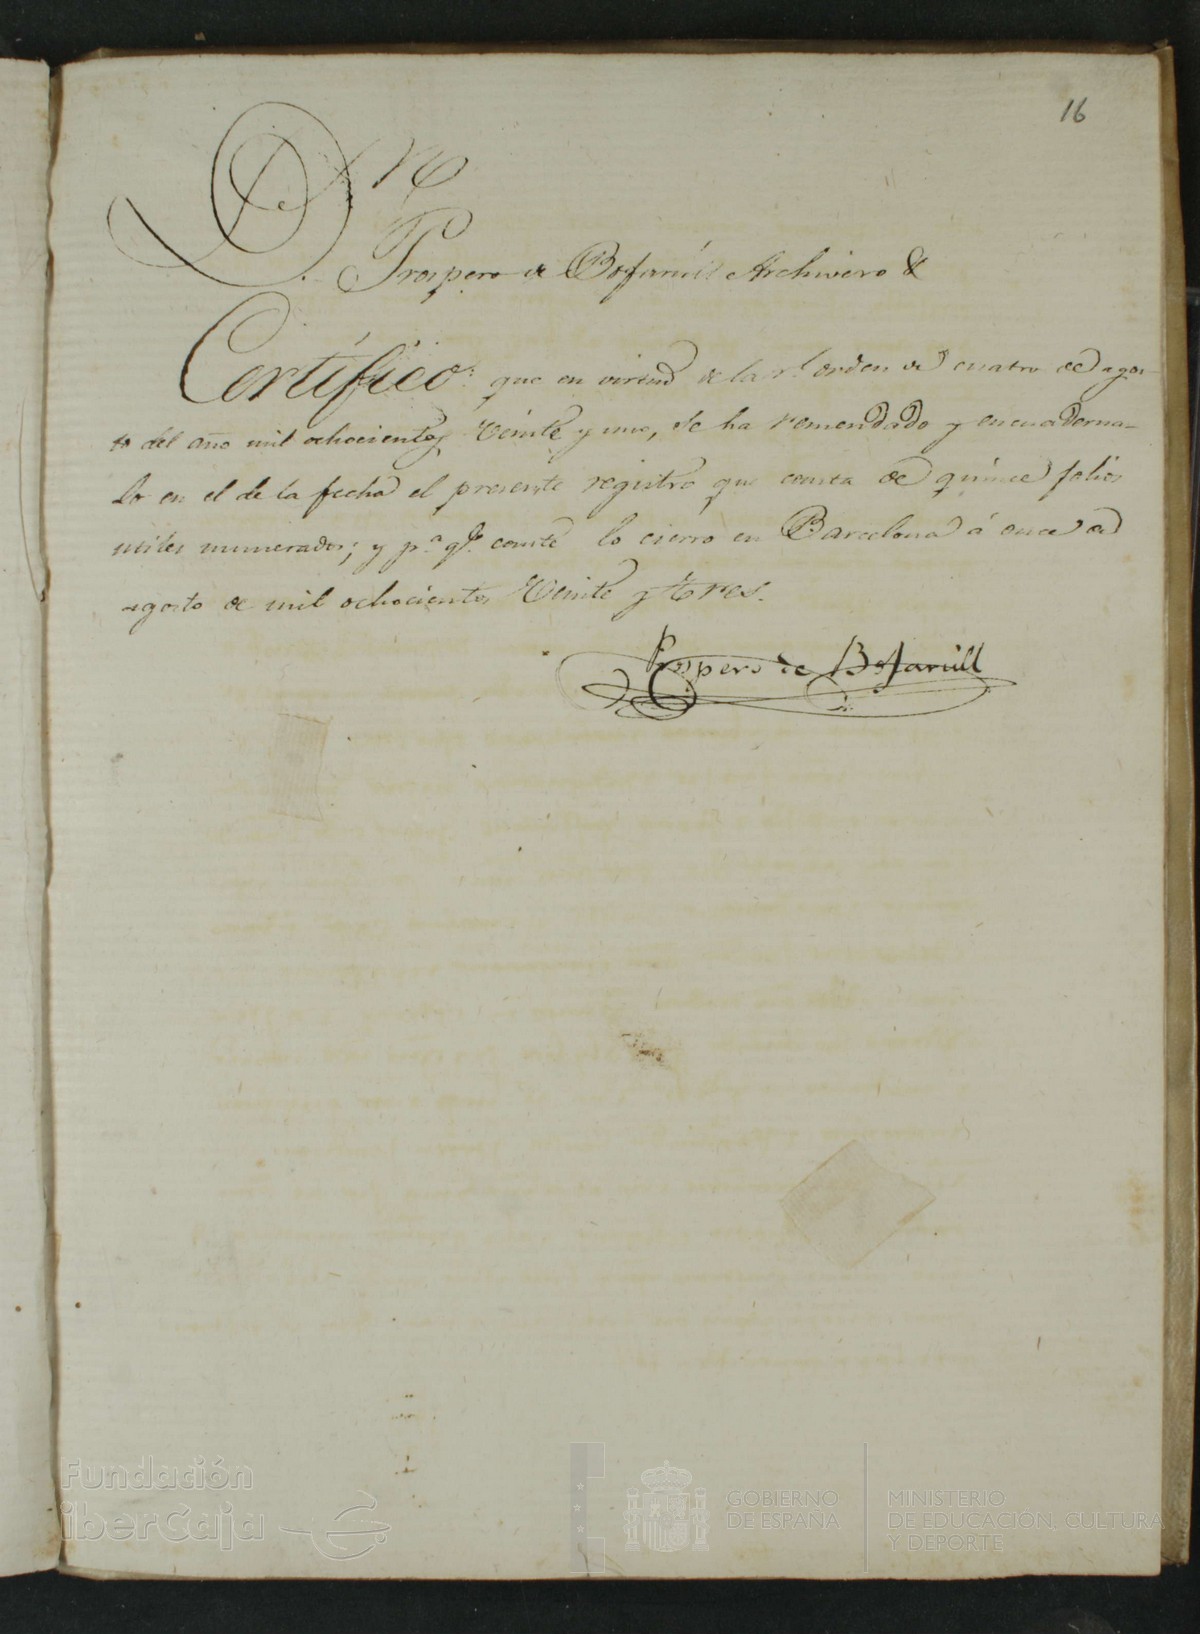 16
Dn
Prospero de Bofarull Archivero &
Certífico: que en virtud de la rl orden de cuatro de agos-
to del año mil ochocientos Veinte y uno, se ha remendado y encuaderna-
do en el de la fecha el presente registro que consta de quince folios
utiles numerados; y pa qe conste lo cierro en Barcelona á once de
agosto de mil ochocientos Veinte y tres.
Prospero de Bofarull
Fundación
iberCaja
GOBIERNO
DE ESPAÑA
MINISTERIO
DE EDUCACIÓN, CULTURA
Y DEPORTE